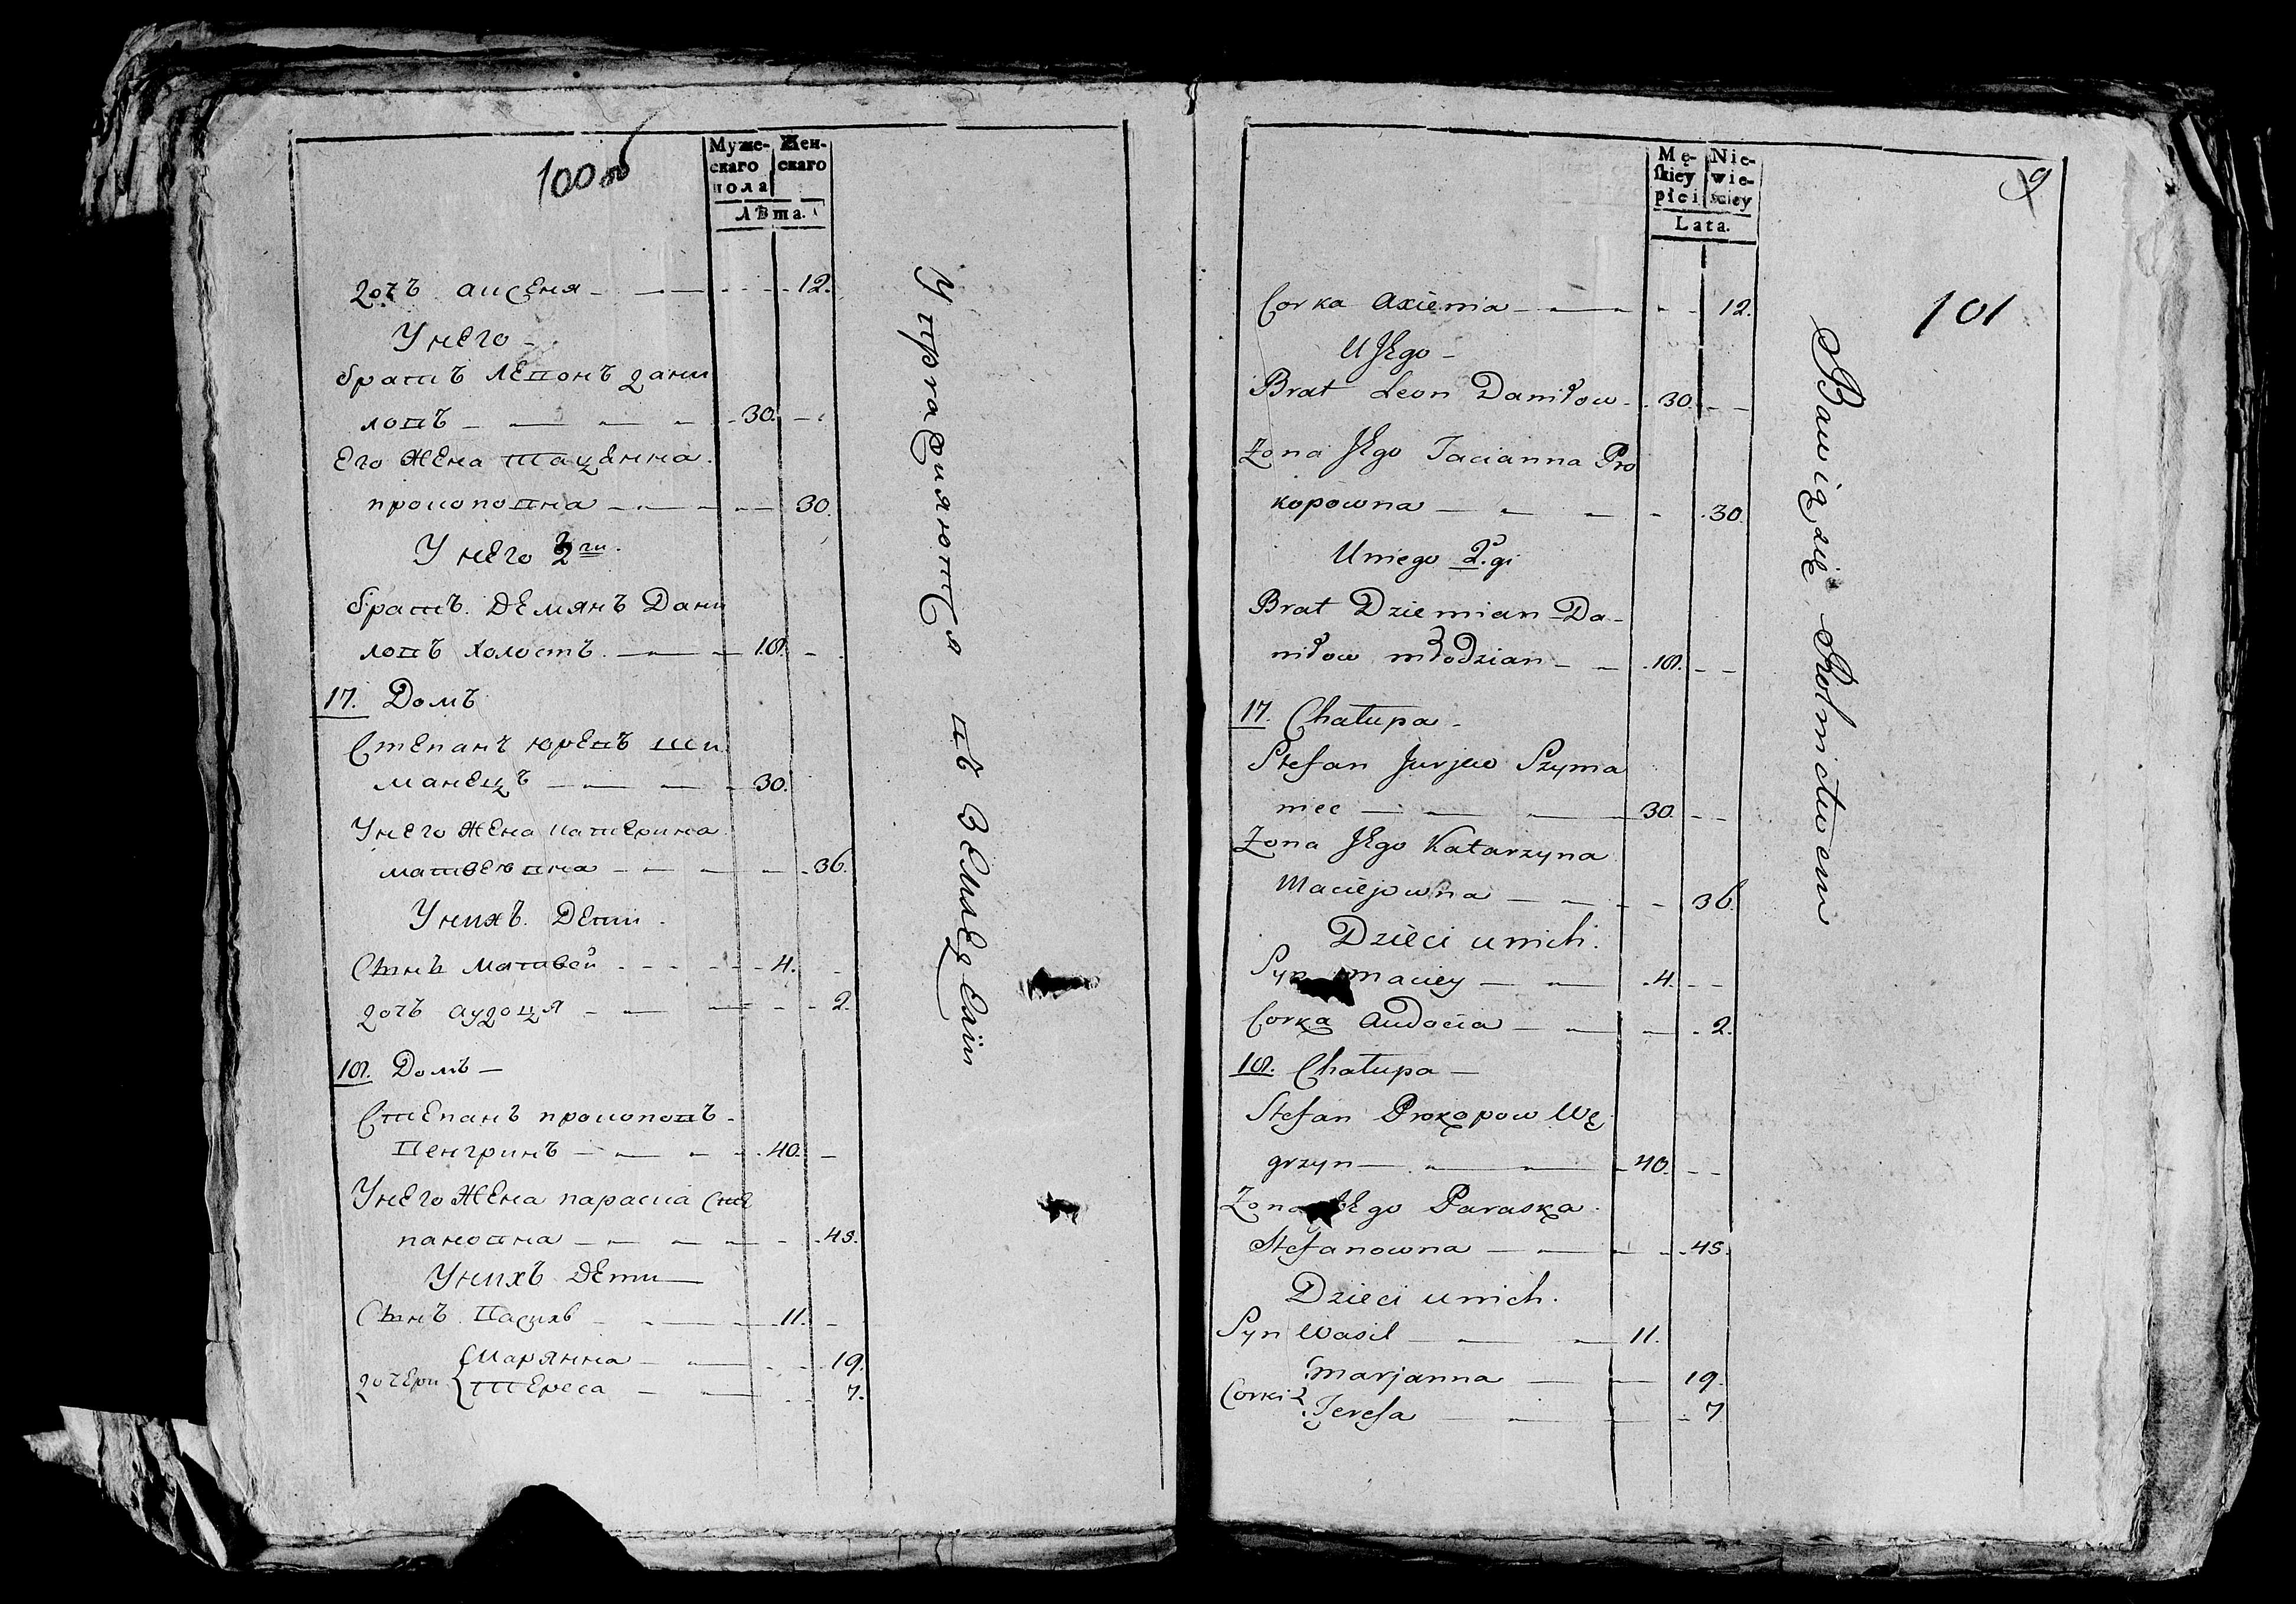 100 об
Муже-
скаго
пола
Жен-
скаго
Лѣта.
дочъ аксеня 12.
У него
братъ левонъ дани
ловъ 30.
его жена тацянна
прокоповна 30.
У него 2ги.
братъ демянъ Дани
ловъ холостъ 18.
17. Домъ
Степанъ юревъ ши
манецъ 30.
У него жена катерина
матвеювна 36.
У нихъ дети
Сынъ матвей 4.
дочъ аудоця 2.
18. Домъ
Степанъ прокоповъ
Венгринъ 40.
У него жена параска сте
пановна 45.
У нихъ дети
Сынъ василь 11.
дочери { марянна 19.
тереса 7.
Упражняются въ земледелии
Mę-
skiey
płci
Nie-
wie-
sciey
Lata.
9
101
Corka Axienia 12.
U Jego
Brat Leon Daniłow 30.
Żona Jego Tacianna Pro
kopowna 30.
U niego 2.gi
Brat Dziemian Da-
niłow młodzian 18.
17. Chałupa
Stefan Jurjew Szyma
niec 30.
Żona Jego Katarzyna
Maciejowna 36.
Dzieci u nich.
Syn Maciey 4.
Corka Audocia 2.
18. Chałupa
Stefan Prokopow Wę
grzyn 40.
Żona Jego Paraska
Stefanowna 45.
Dzieci u nich.
Syn Wasil 11.
Corki { Marjanna 19.
Teresa 7
Bawią się Rolnictwem